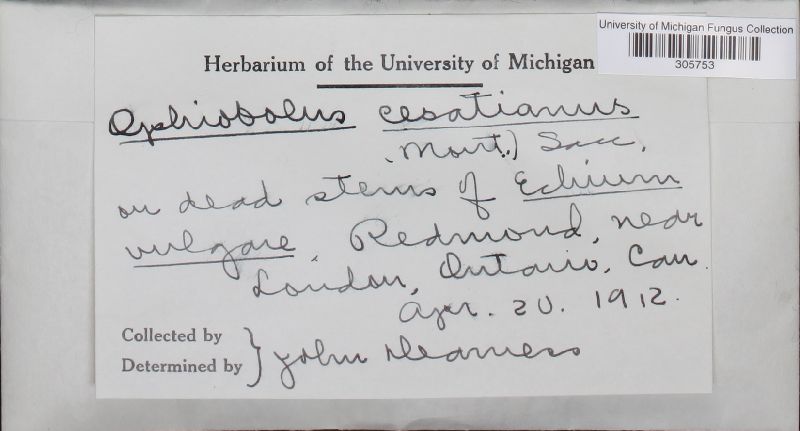 University of Michigan Fungus Collection
305753
Herbarium of the University of Michigan
Ophiobolus cesatianus
(Mont.) Sacc.
on dead stems of Echium
vulgare, Redmond, near
London, Ontario, Can.
Apr. 20. 1912.
Collected by
Determined by } John Dearness